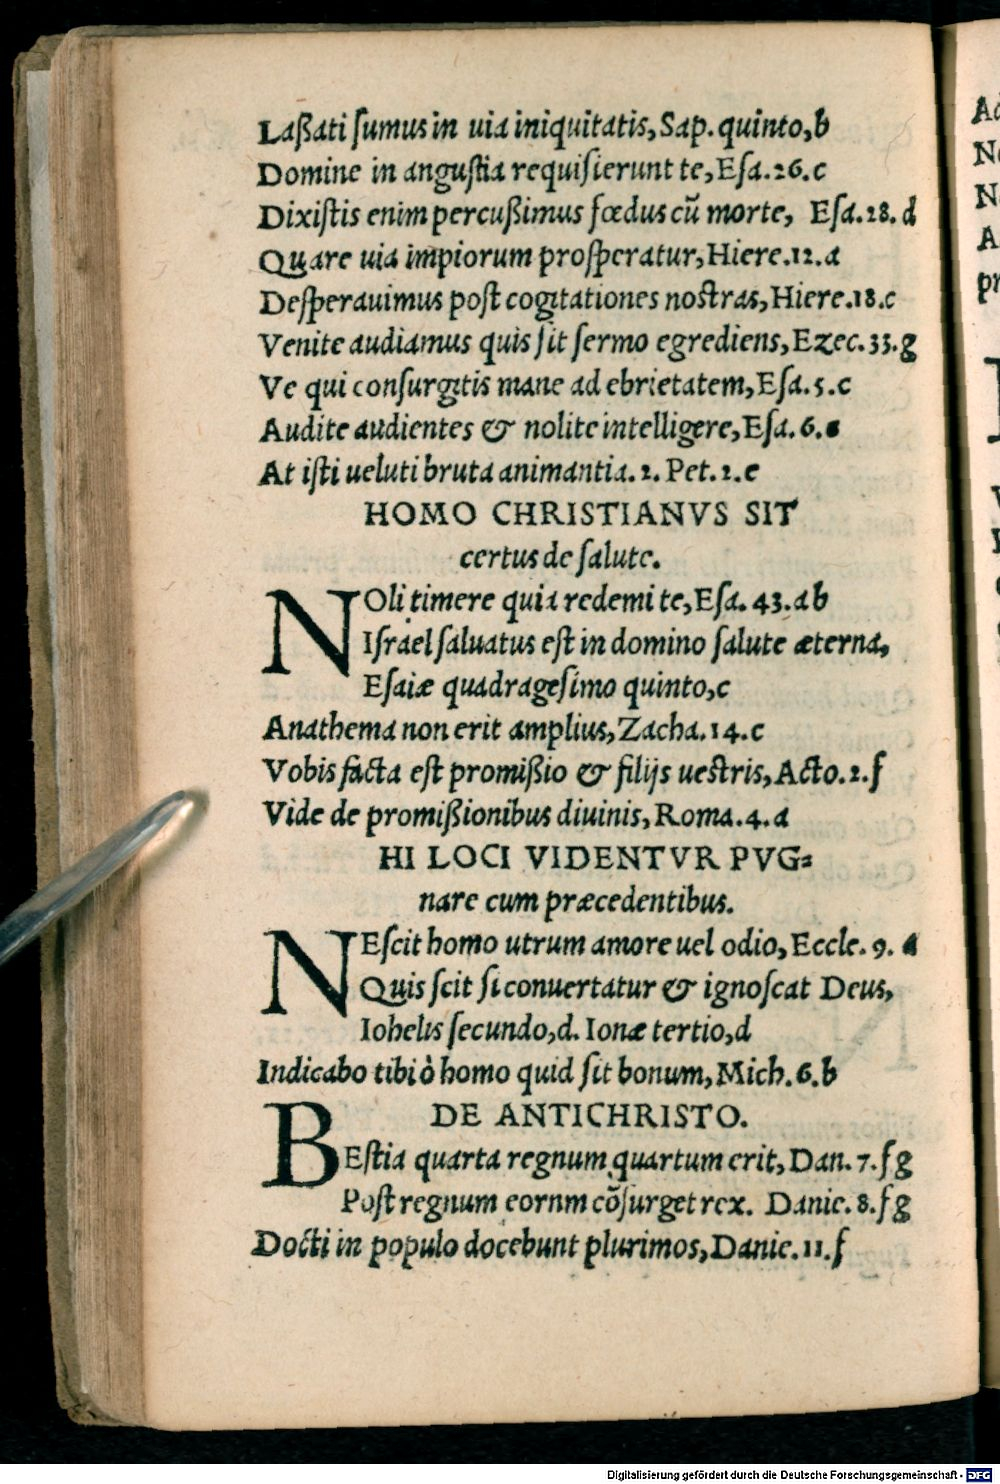 Laßati ſumus in uia iniquitatis, Sap. quinto, b
Domine in anguſtia requiſierunt te, Eſa. 26. c
Dixiſtis enim percußimus fœdus cũ morte, Eſa. 28. d
Quare uia impiorum proſperatur, Hiere. 12. a
Deſperauimus poſt cogitationes nostras, Hiere. 18. c
Venite audiamus quis ſit ſermo egrediens, Ezec. 33. g
Ve qui conſurgitis mane ad ebrietatem, Eſa. 5. c
Audite audientes & nolite intelligere, Eſa. 6.
At iſti ueluti bruta animantia. 2. Pet. 2. c
HOMO CHRISTIANVS SIT
certus de ſalute.
NOli timere quia redemi te, Eſa. 43. ab
Iſrael ſaluatus eſt in domino ſalute æterna,
Eſaiæ quadrageſimo quinto, c
Anathema non erit amplius, Zacha. 14. c
Vobis facta eſt promißio & filijs uestris, Acto. 2. f
Vide de promißionibus diuinis, Roma. 4. a
HI LOCI VIDENTVR PVG=
nare cum præcedentibus.
NEſcit homo utrum amore uel odio, Eccle. 9. a
Quis ſcit ſi conuertatur & ignoſcat Deus,
Iohelis ſecundo, d. Ionæ tertio, d
Indicabo tibi ò homo quid ſit bonum, Mich. 6. b
DE ANTICHRISTO.
BEſtia quarta regnum quartum erit, Dan. 7. f g
Poſt regnum eornm cõſurget rex. Danie. 8. f g
Docti in populo docebunt plurimos, Danie. 11. f
Digitalisierung gefördert durch die Deutsche Forschungsgemeinschaft - DFG